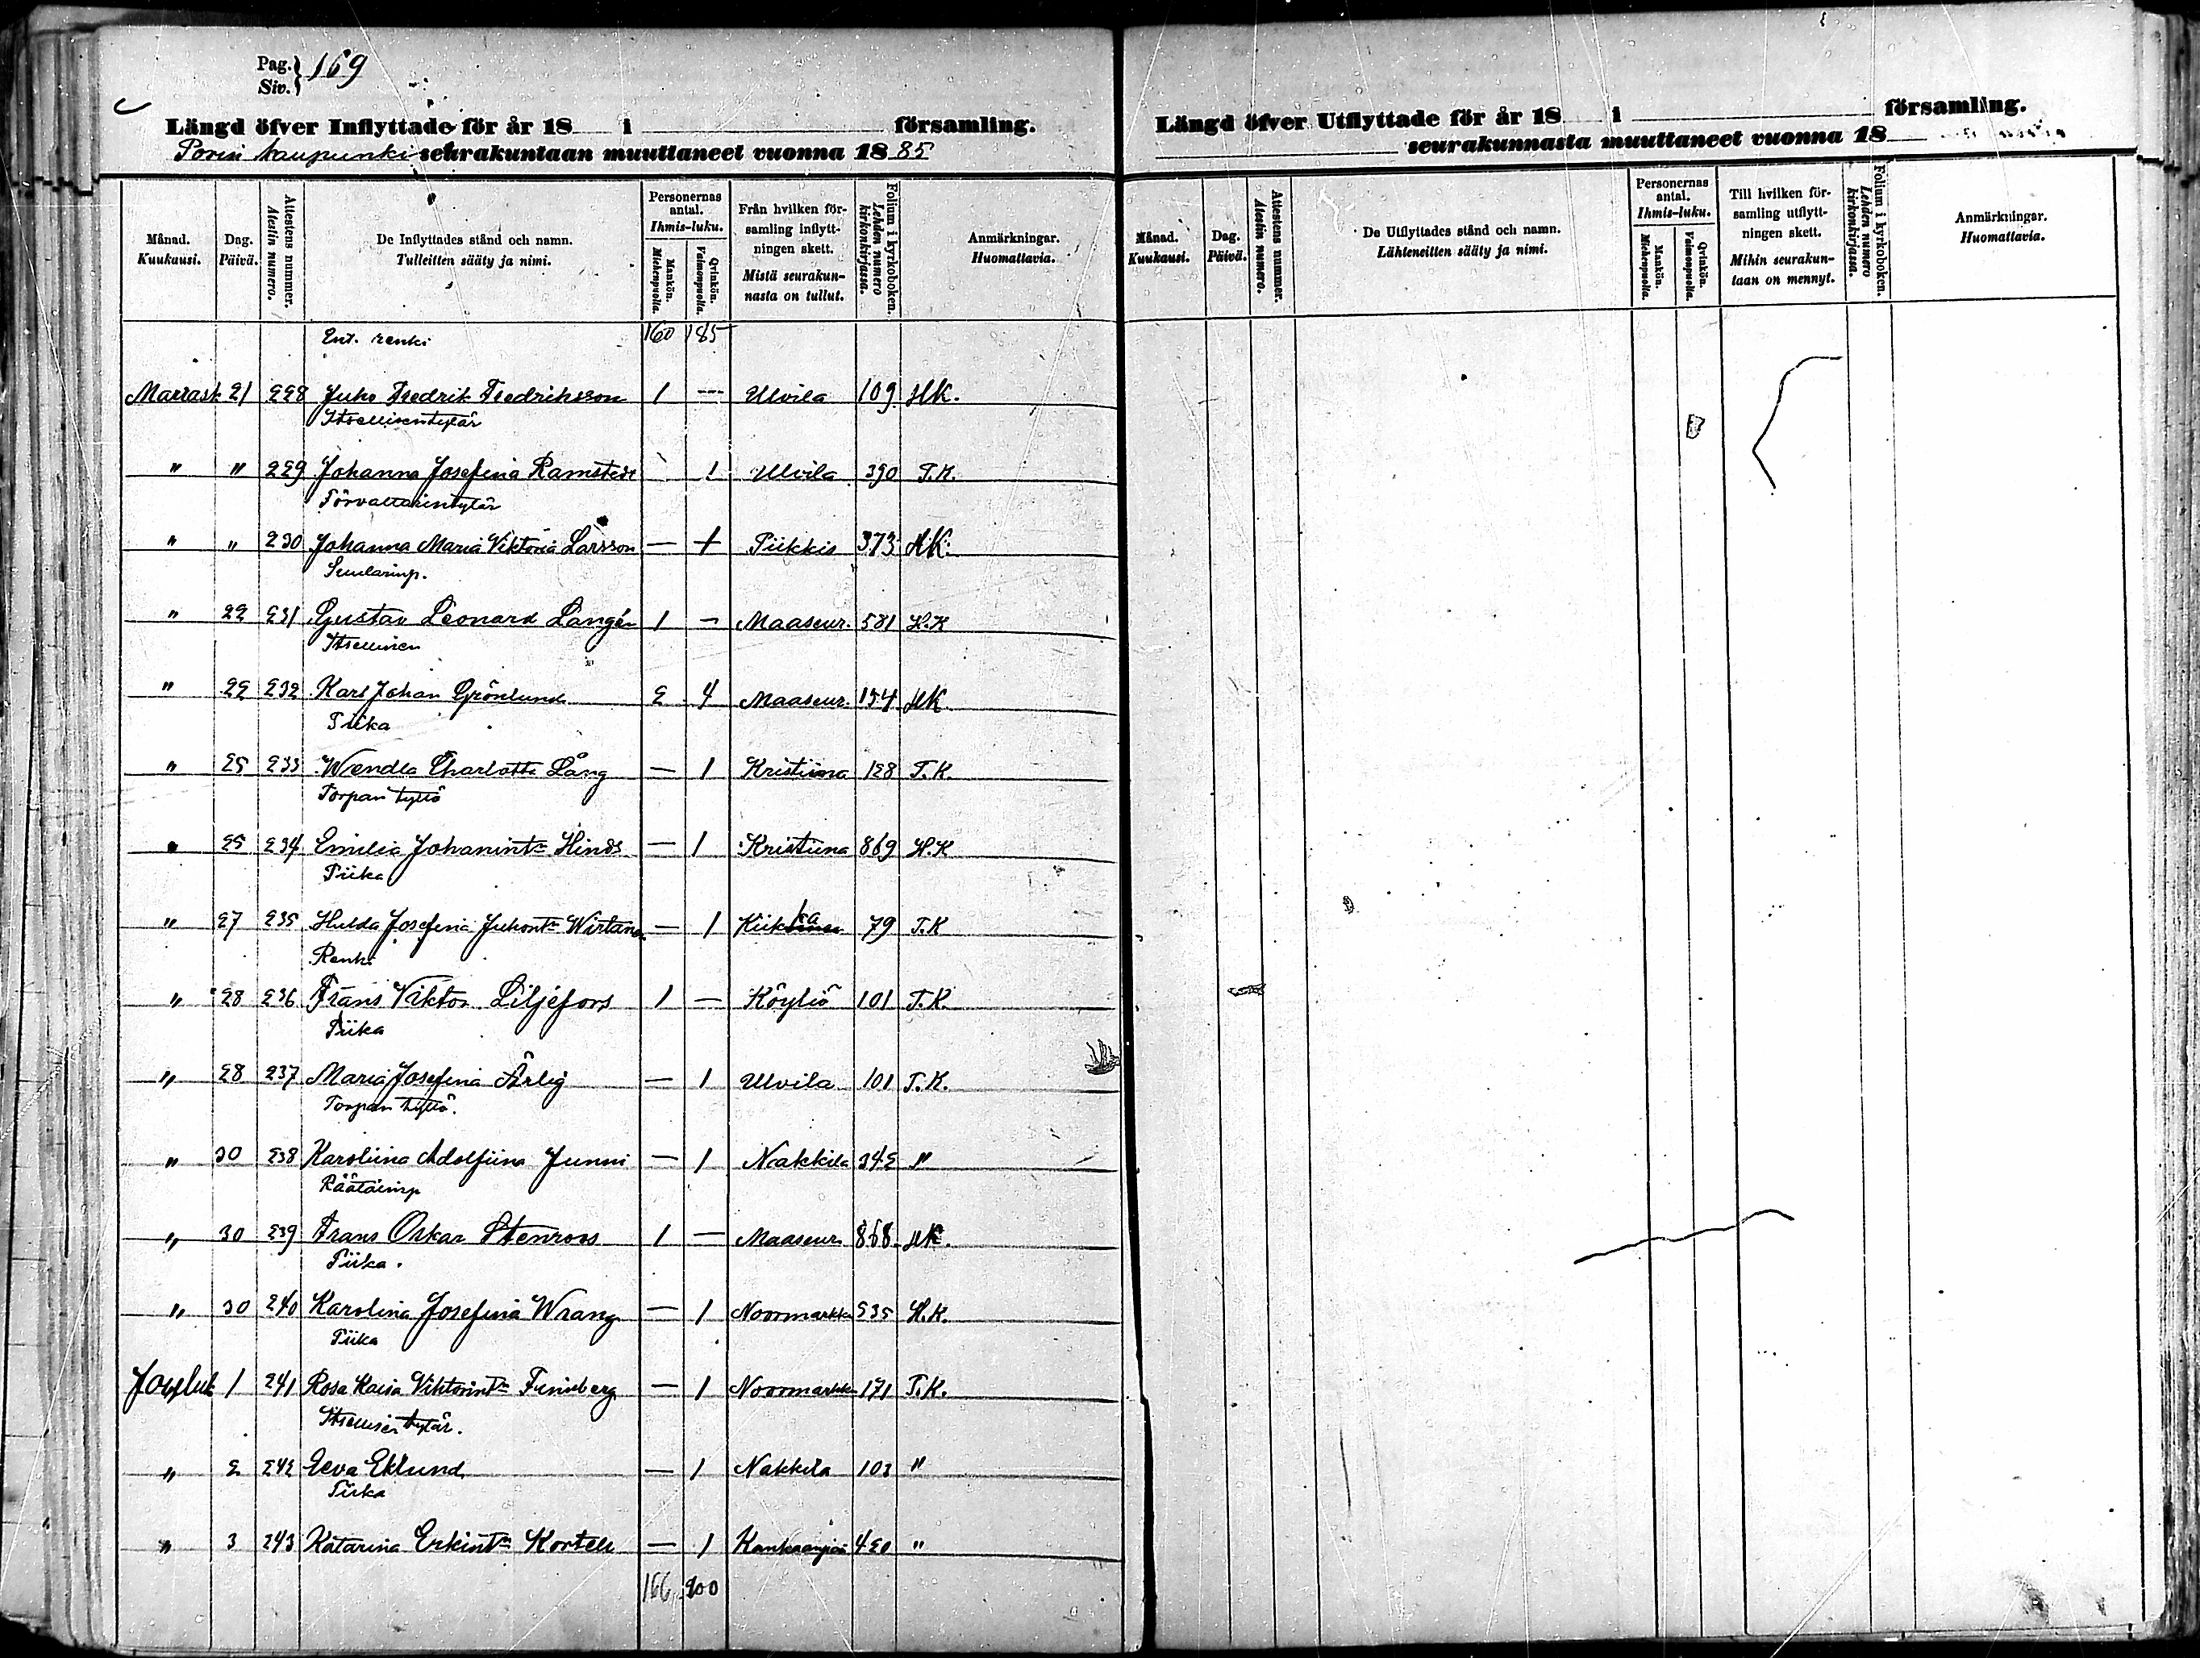 Pag. Siv. } 169
Längd öfver Inflyttade för år 18 i församling.
Porin kaupunki seurakuntaan muuttaneet vuonna 1885
Månad. Kuukausi. Dag. Päivä. Attestens nummer. Atestin numero. De Inflyttades stånd och namn. Tulleitten sääty ja nimi. Personernas antal. Ihmis-luku. Mankön. Miehenpuolia. Qvinkön. Vaimonpuolia. Från hvilken församling inflyttningen skett. Mistä seurakunnasta on tullut. Folium i kyrkoboken. Lehden numero kirkonkirjassa. Anmärkningar. Huomattavia.
Ent. renki 160 185
Marrask 21 228 Juho Fredrik Fredriksson 1 — Ulvila 109 HK.
Itsellisentytär
" " 229 Johanna Josefina Ramstedt 1 Ulvila 390 T.K.
Förvaltarintytär
" " 230 Johanna Maria Viktoria Larsson — 1 Piikkis 373 HK.
" 22 231 Gustav Leonard Langén 1 — Maaseur. 581 H.K
Itsellinen
" 22 232 Karl Johan Grönlund 2 4 Maaseur. 154 HK
Piika
" 25 233 Wendla Charlotta Lång — 1 Kristiina 128 T.K
Torpan tyttö
" 25 234 Emilia Johanint: Hinds — 1 Kristiina 869 H.K
Piika
" 27 235 Hulda Josefina Juhont: Wirtanen — 1 Kiikka 79 T.K
Renki
" 28 236 Frans Viktor Liljefors 1 — Köyliö 101 T.K.
Piika
" 28 237 Maria Josefina Ärlig — 1 Ulvila 101 T.K.
Torpan tyttö.
" 30 238 Karoliina Adolfiina Junni — 1 Nakkila 342 "
Räätälinp
" 30 239 Frans Oskar Stenroos 1 — Maaseur. 868 HK.
Piika.
" 30 240 Karolina Josefina Wrang — 1 Noormarkku 535 H.K.
Piika
Jouluk 1 241 Rosa Kaisa Viktorint: — 1 Noormarkku 171 T.K.
Itsellisen tytär.
" 2 242 Eeva Eklund — 1 Nakkila 103 "
Piika
" 3 243 Katarina Erkint: — 1 Kankaanpää 420 "
166 200
Längd öfver Utflyttade för år 18 i församling.
seurakunnasta muuttaneet vuonna 18
Månad. Kuukausi. Dag. Päivä. Attestens nummer. Atestin numero. De Utflyttades stånd och namn. Lähteneitten sääty ja nimi. Personernas antal. Ihmis-luku. Mankön. Miehenpuolia. Qvinkön. Vaimonpuolia. Till hvilken församling utflyttningen skett. Mihin seurakuntaan on mennyt. Folium i kyrkoboken. Lehden numero kirkonkirjassa. Anmärkningar. Huomattavia.